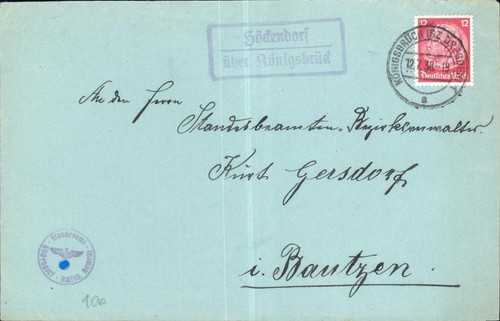 Höckendorf
über Königsbrück
12 12
Deutsches Reich
KÖNIGSBRÜCK (BZ. DRESDEN)
12.7.
a
An den Herrn
Standesbeamten, Bezirksverwalter
Kurt Gersdorf
i. Bautzen.
Standesamt
100